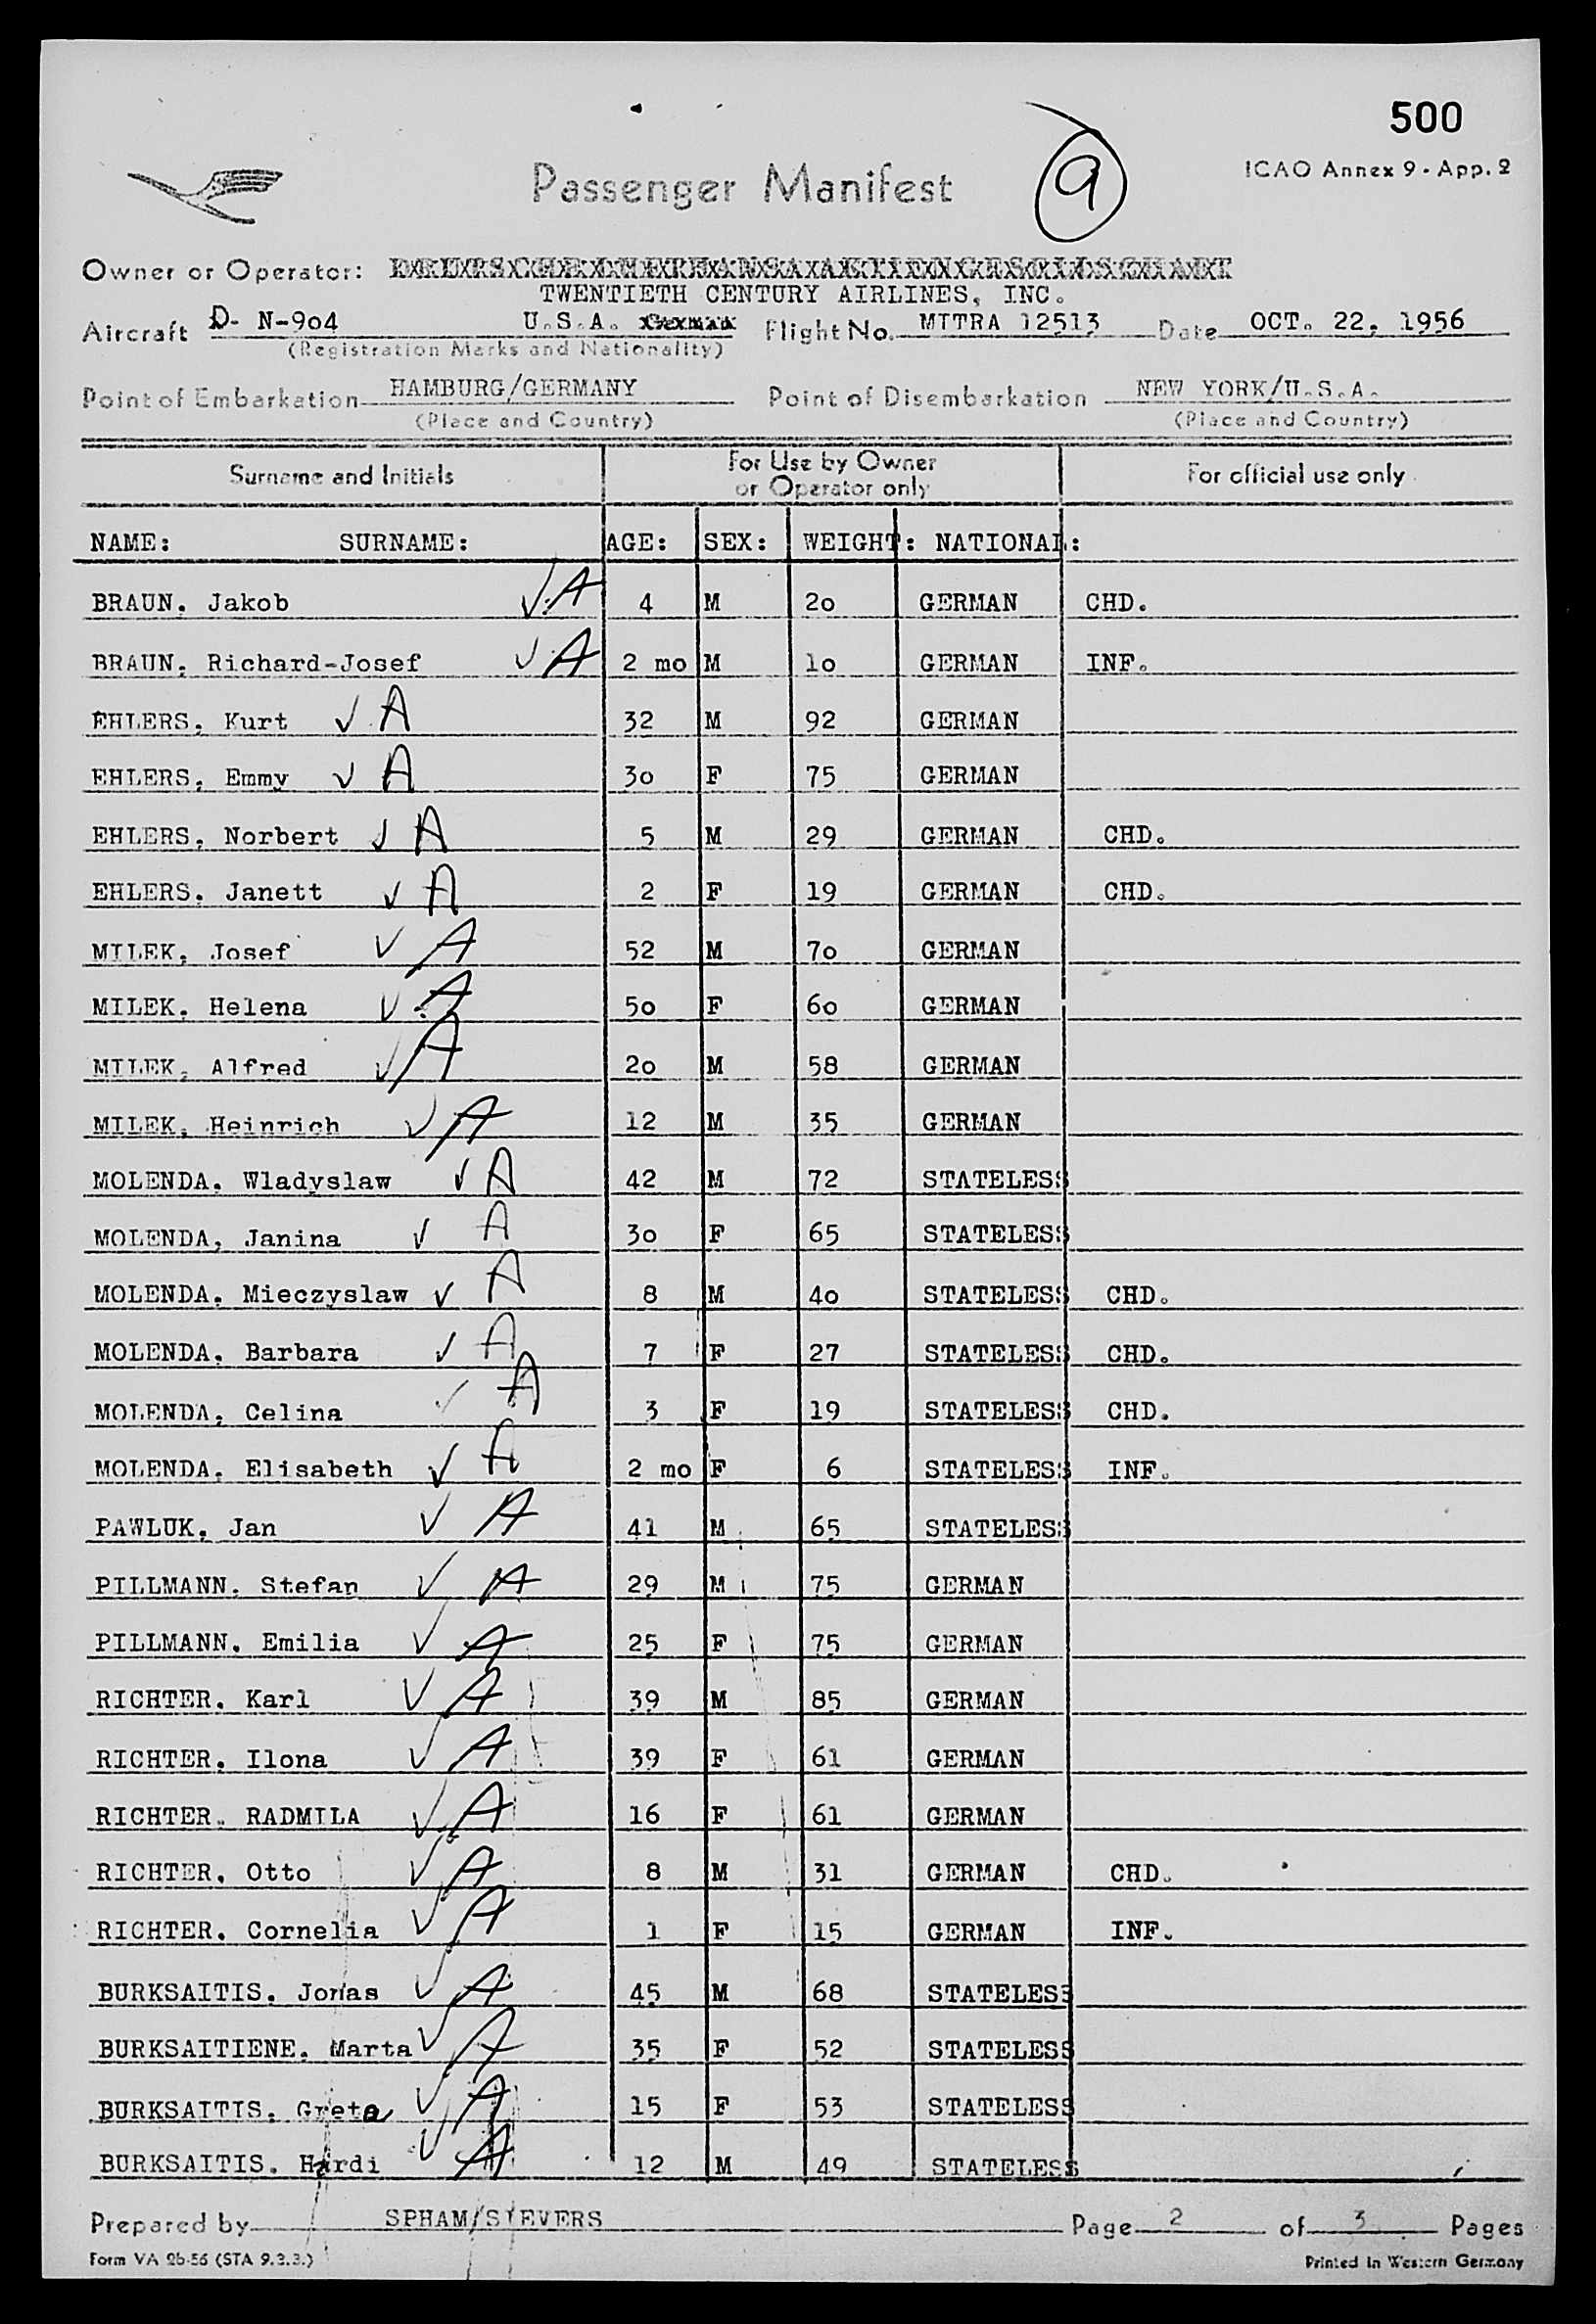 500
ICAO Annex 9 - App. 2
Passenger Manifest
9
Owner or Operator:
TWENTIETH CENTURY AIRLINES, INC.
Aircraft D- N-904 U.S.A. German Flight No. MTTRA 12513 Date OCT. 22, 1956
(Registration Marks and Nationality)
Point of Embarkation HAMBURG/GERMANY Point of Disembarkation NEW YORK/U.S.A.
(Place and Country) (Place and Country)
Surname and Initials For Use by Owner or Operator only For official use only
NAME: SURNAME: AGE: SEX: WEIGHT: NATIONAL:
BRAUN, Jakob √ A 4 M 2o GERMAN CHD.
BRAUN, Richard-Josef √ A 2 mo M 1o GERMAN INF.
EHLERS, Kurt √ A 32 M 92 GERMAN
EHLERS, Emmy √ A 3o F 75 GERMAN
EHLERS, Norbert √ A 5 M 29 GERMAN CHD.
EHLERS, Janett √ A 2 F 19 GERMAN CHD.
MILEK, Josef √ A 52 M 7o GERMAN
MILEK, Helena √ A 5o F 6o GERMAN
MILEK, Alfred √ A 2o M 58 GERMAN
MILEK, Heinrich √ A 12 M 35 GERMAN
MOLENDA, Wladyslaw √ A 42 M 72 STATELESS
MOLENDA, Janina √ A 3o F 65 STATELESS
MOLENDA, Mieczyslaw √ A 8 M 4o STATELESS CHD.
MOLENDA, Barbara √ A 7 F 27 STATELESS CHD.
MOLENDA, Celina √ A 3 F 19 STATELESS CHD.
MOLENDA, Elisabeth √ A 2 mo F 6 STATELESS INF.
PAWLUK, Jan √ A 41 M 65 STATELESS
PILLMANN, Stefan √ A 29 M 75 GERMAN
PILLMANN, Emilia √ A 25 F 75 GERMAN
RICHTER, Karl √ A 39 M 85 GERMAN
RICHTER, Ilona √ A 39 F 61 GERMAN
RICHTER, RADMILA √ A 16 F 61 GERMAN
RICHTER, Otto √ A 8 M 31 GERMAN CHD.
RICHTER, Cornelia √ A 1 F 15 GERMAN INF.
BURKSAITIS, Jonas √ A 45 M 68 STATELESS
BURKSAITIENE, Marta √ A 35 F 52 STATELESS
BURKSAITIS, Greta √ A 15 F 53 STATELESS
BURKSAITIS, Hardi √ A 12 M 49 STATELESS
Prepared by SPHAM/SIEVERS Page 2 of 3 Pages
Form VA 2b-56 (STA 9.3.3.) Printed in Western Germany